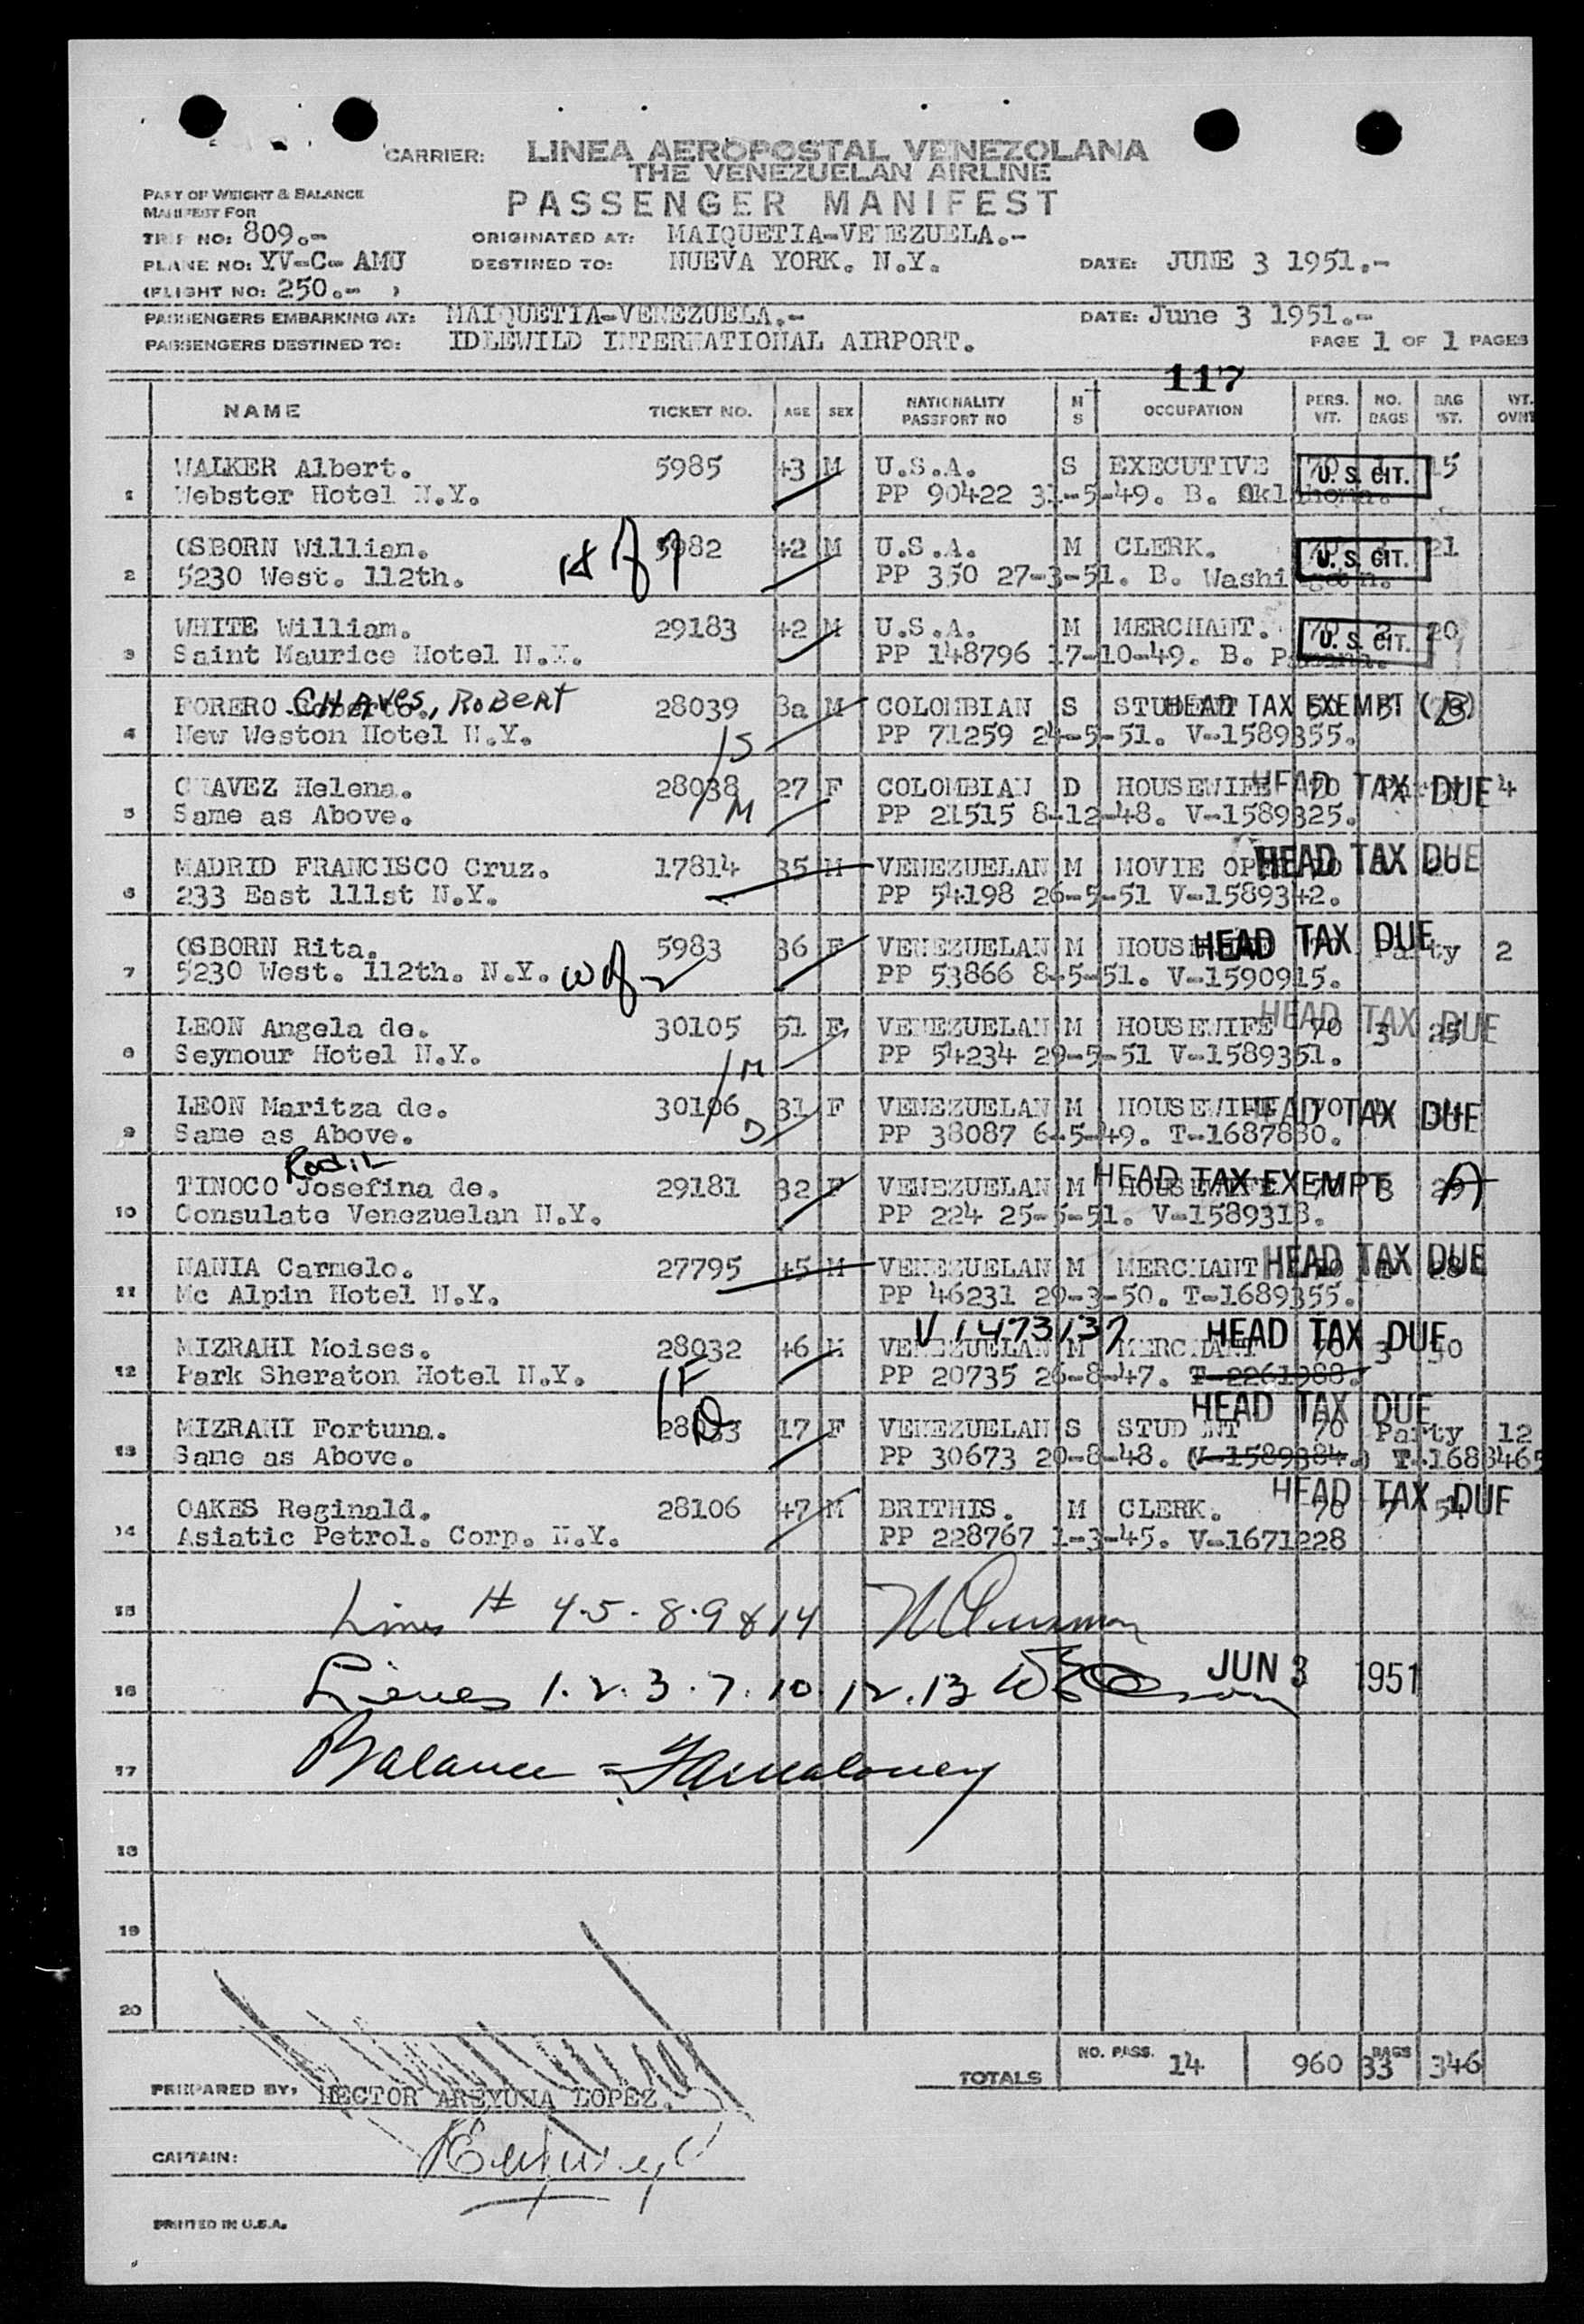 CARRIER: LINEA AEROPOSTAL VENEZOLANA
THE VENEZUELAN AIRLINE
PASSENGER MANIFEST
PART OF WEIGHT & BALANCE
MANIFEST FOR
TRIP NO: 809.- ORIGINATED AT: MAIQUETIA-VENEZUELA.-
PLANE NO: YV-C- AMU DESTINED TO: NUEVA YORK. N.Y. DATE: JUNE 3 1951.-
(FLIGHT NO: 250.- )
PASSENGERS EMBARKING AT: MAIQUETIA-VENEZUELA.- DATE: June 3 1951.-
PASSENGERS DESTINED TO: IDLEWILD INTERNATIONAL AIRPORT. PAGE 1 OF 1 PAGES
117
NAME TICKET NO. AGE SEX NATIONALITY PASSPORT NO M S OCCUPATION PERS. WT. NO. BAGS BAG WT. WT. OVNT
WALKER Albert. 5985 43 M U.S.A. S EXECUTIVE 70 1 15 U.S. CIT.
1 Webster Hotel N.Y. PP 90422 31-5-49. B. Oklahoma.
OSBORN William. 5982 42 M U.S.A. M CLERK. 70 21 U.S. CIT.
2 5230 West. 112th. PP 350 27-3-51. B. Washington.
WHITE William. 29183 42 M U.S.A. M MERCHANT. 70 2 20 U.S. CIT.
3 Saint Maurice Hotel N.Y. PP 148796 17-10-49. B. Panama.
FORERO Roberto. CHAVES, ROBERT 28039 8a M COLOMBIAN S STUDENT HEAD TAX EXEMPT (B)
4 New Weston Hotel N.Y. PP 71259 24-5-51. V-1589355.
1/S
CHAVEZ Helena. 28038 27 F COLOMBIAN D HOUSEWIFE 70 HEAD TAX DUE 4
5 Same as Above. 1/M PP 21515 8-12-48. V-1589325.
MADRID FRANCISCO Cruz. 17814 35 M VENEZUELAN M MOVIE HEAD TAX DUE
6 233 East 111st N.Y. PP 54198 26-5-51 V-1589342.
OSBORN Rita. 5983 36 F VENEZUELAN M HOUSEWIFE 70 Party 2 HEAD TAX DUE
7 5230 West. 112th. N.Y. PP 53866 8-5-51. V-1590915.
LEON Angela de. 30105 51 F VENEZUELAN M HOUSEWIFE 70 3 25 HEAD TAX DUE
8 Seymour Hotel N.Y. PP 54234 29-5-51 V-1589351.
1/M
LEON Maritza de. 30106 31 F VENEZUELAN M HOUSEWIFE 70 HEAD TAX DUE
9 Same as Above. D PP 38087 6-5-49. T-1687880.
Rodil
TINOCO Josefina de. 29181 32 F VENEZUELAN M HOUSEWIFE 70 3 HEAD TAX EXEMPT A
10 Consulate Venezuelan N.Y. PP 224 25-5-51. V-1589318.
NANIA Carmelo. 27795 45 M VENEZUELAN M MERCHANT HEAD TAX DUE
11 Mc Alpin Hotel N.Y. PP 46231 29-3-50. T-1689355.
V1473137
MIZRAHI Moises. 28032 46 M VENEZUELAN M MERCHANT 70 3 50 HEAD TAX DUE
12 Park Sheraton Hotel N.Y. 1/F PP 20735 26-8-47. T-2261988.
MIZRAHI Fortuna. 28033 17 F VENEZUELAN S STUDENT 70 Party 12 HEAD TAX DUE
13 Same as Above. D PP 30673 20-8-48. (V-1589384.) T-1688465
OAKES Reginald. 28106 47 M BRITHIS. M CLERK. 70 7 54 HEAD TAX DUE
14 Asiatic Petrol. Corp. N.Y. PP 228767 1-3-45. V-1671228
15 Lines # 4-5-8-9 & 14
16 Lines 1.2.3.7.10.12.13 JUN 3 1951
17 Balance =
18
19
20
TOTALS NO. PASS. 14 960 BAGS 33 346
PREPARED BY: HECTOR AREYUNA LOPEZ.
CAPTAIN:
PRINTED IN U.S.A.